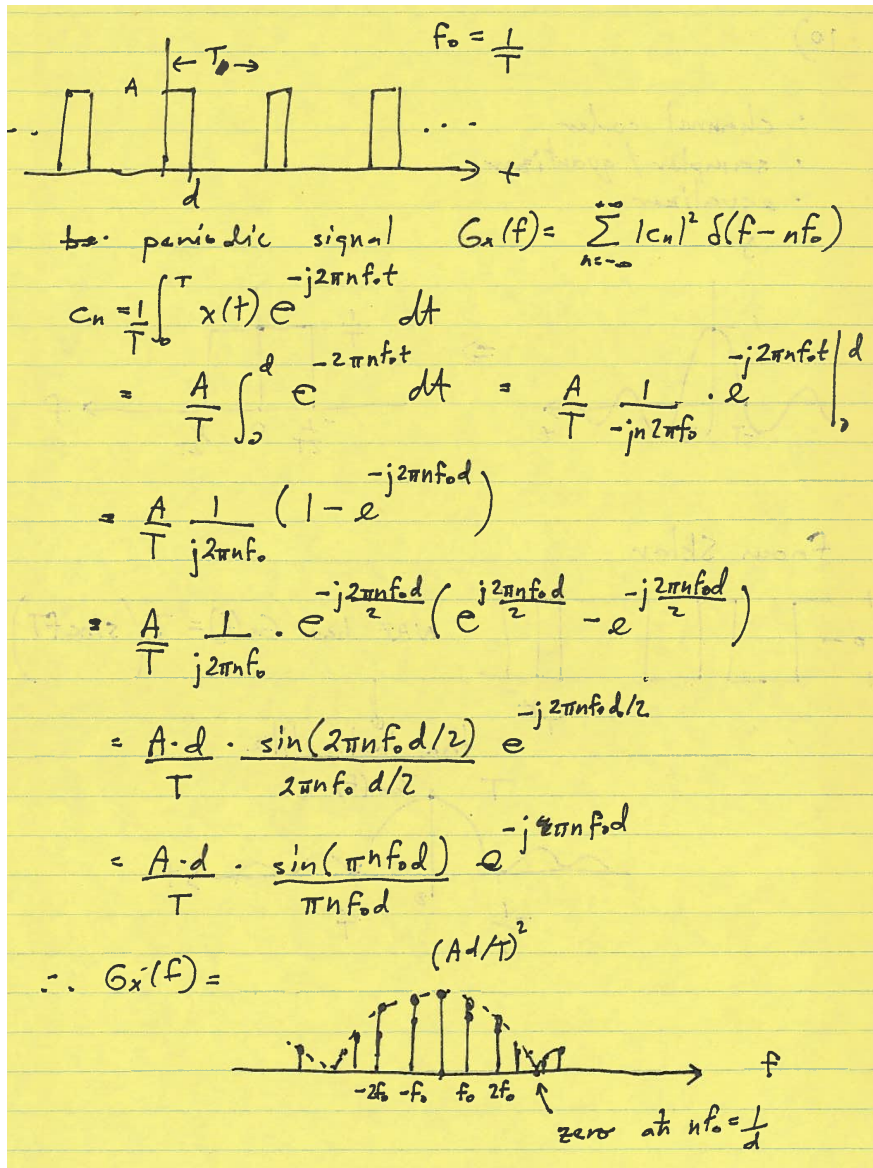 f₀ = 1/T
← T₀ →
A
. . . . .
d t
periodic signal Gₓ(f) = Σ_{n=-∞}^{+∞} |cₙ|² δ(f - nf₀)
cₙ = 1/T ∫₀^T x(t) e^{-j2πnf₀t} dt
= A/T ∫₀^d e^{-2πnf₀t} dt = A/T 1/(-jn2πf₀) · e^{-j2πnf₀t} |₀^d
= A/T 1/(j2πnf₀) (1 - e^{-j2πnf₀d})
= A/T 1/(j2πnf₀) · e^{-j2πnf₀d/2} (e^{j2πnf₀d/2} - e^{-j2πnf₀d/2})
= A·d/T · sin(2πnf₀d/2)/(2πnf₀d/2) e^{-j2πnf₀d/2}
= A·d/T · sin(πnf₀d)/(πnf₀d) e^{-jπnf₀d}
(Ad/T)²
∴ Gₓ(f) =
-2f₀ -f₀ f₀ 2f₀ f
zero at nf₀ = 1/d